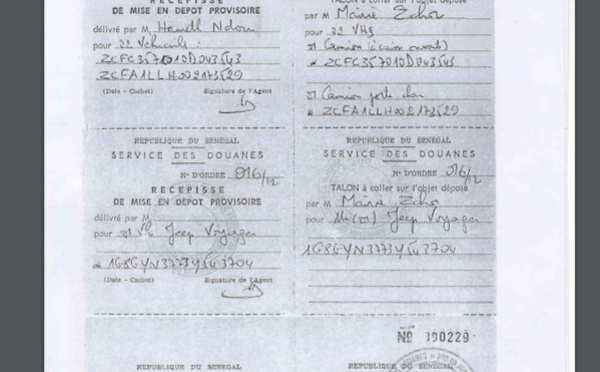 RECEPISSE
DE MISE EN DEPOT PROVISOIRE
délivré par M
pour 02 Véhicules :
ZCFC357010D043543
ZCFA1LLH002173529
(Date - Cachet) Signature de l'Agent
TALON à coller sur l'objet déposé
par M Mairie
pour 02 VHs
01 Camion
ZCFC357010D043543
01 Camion porte char
ZCFA1LLH002173529
REPUBLIQUE DU SENEGAL
SERVICE DES DOUANES
N° D'ORDRE 016/12
RECEPISSE
DE MISE EN DEPOT PROVISOIRE
délivré par M
pour 01 Vh Jeep Voyager
1G8GYN3773Y543704
(Date - Cachet) Signature de l'Agent
REPUBLIQUE DU SENEGAL
SERVICE DES DOUANES
N° D'ORDRE 016/12
TALON à coller sur l'objet déposé
par M Mairie
pour Un (01) Jeep Voyager
1G8GYN3773Y543704
REPUBLIQUE DU SENEGAL
№ 000229
REPUBLIQUE DU SENEGAL